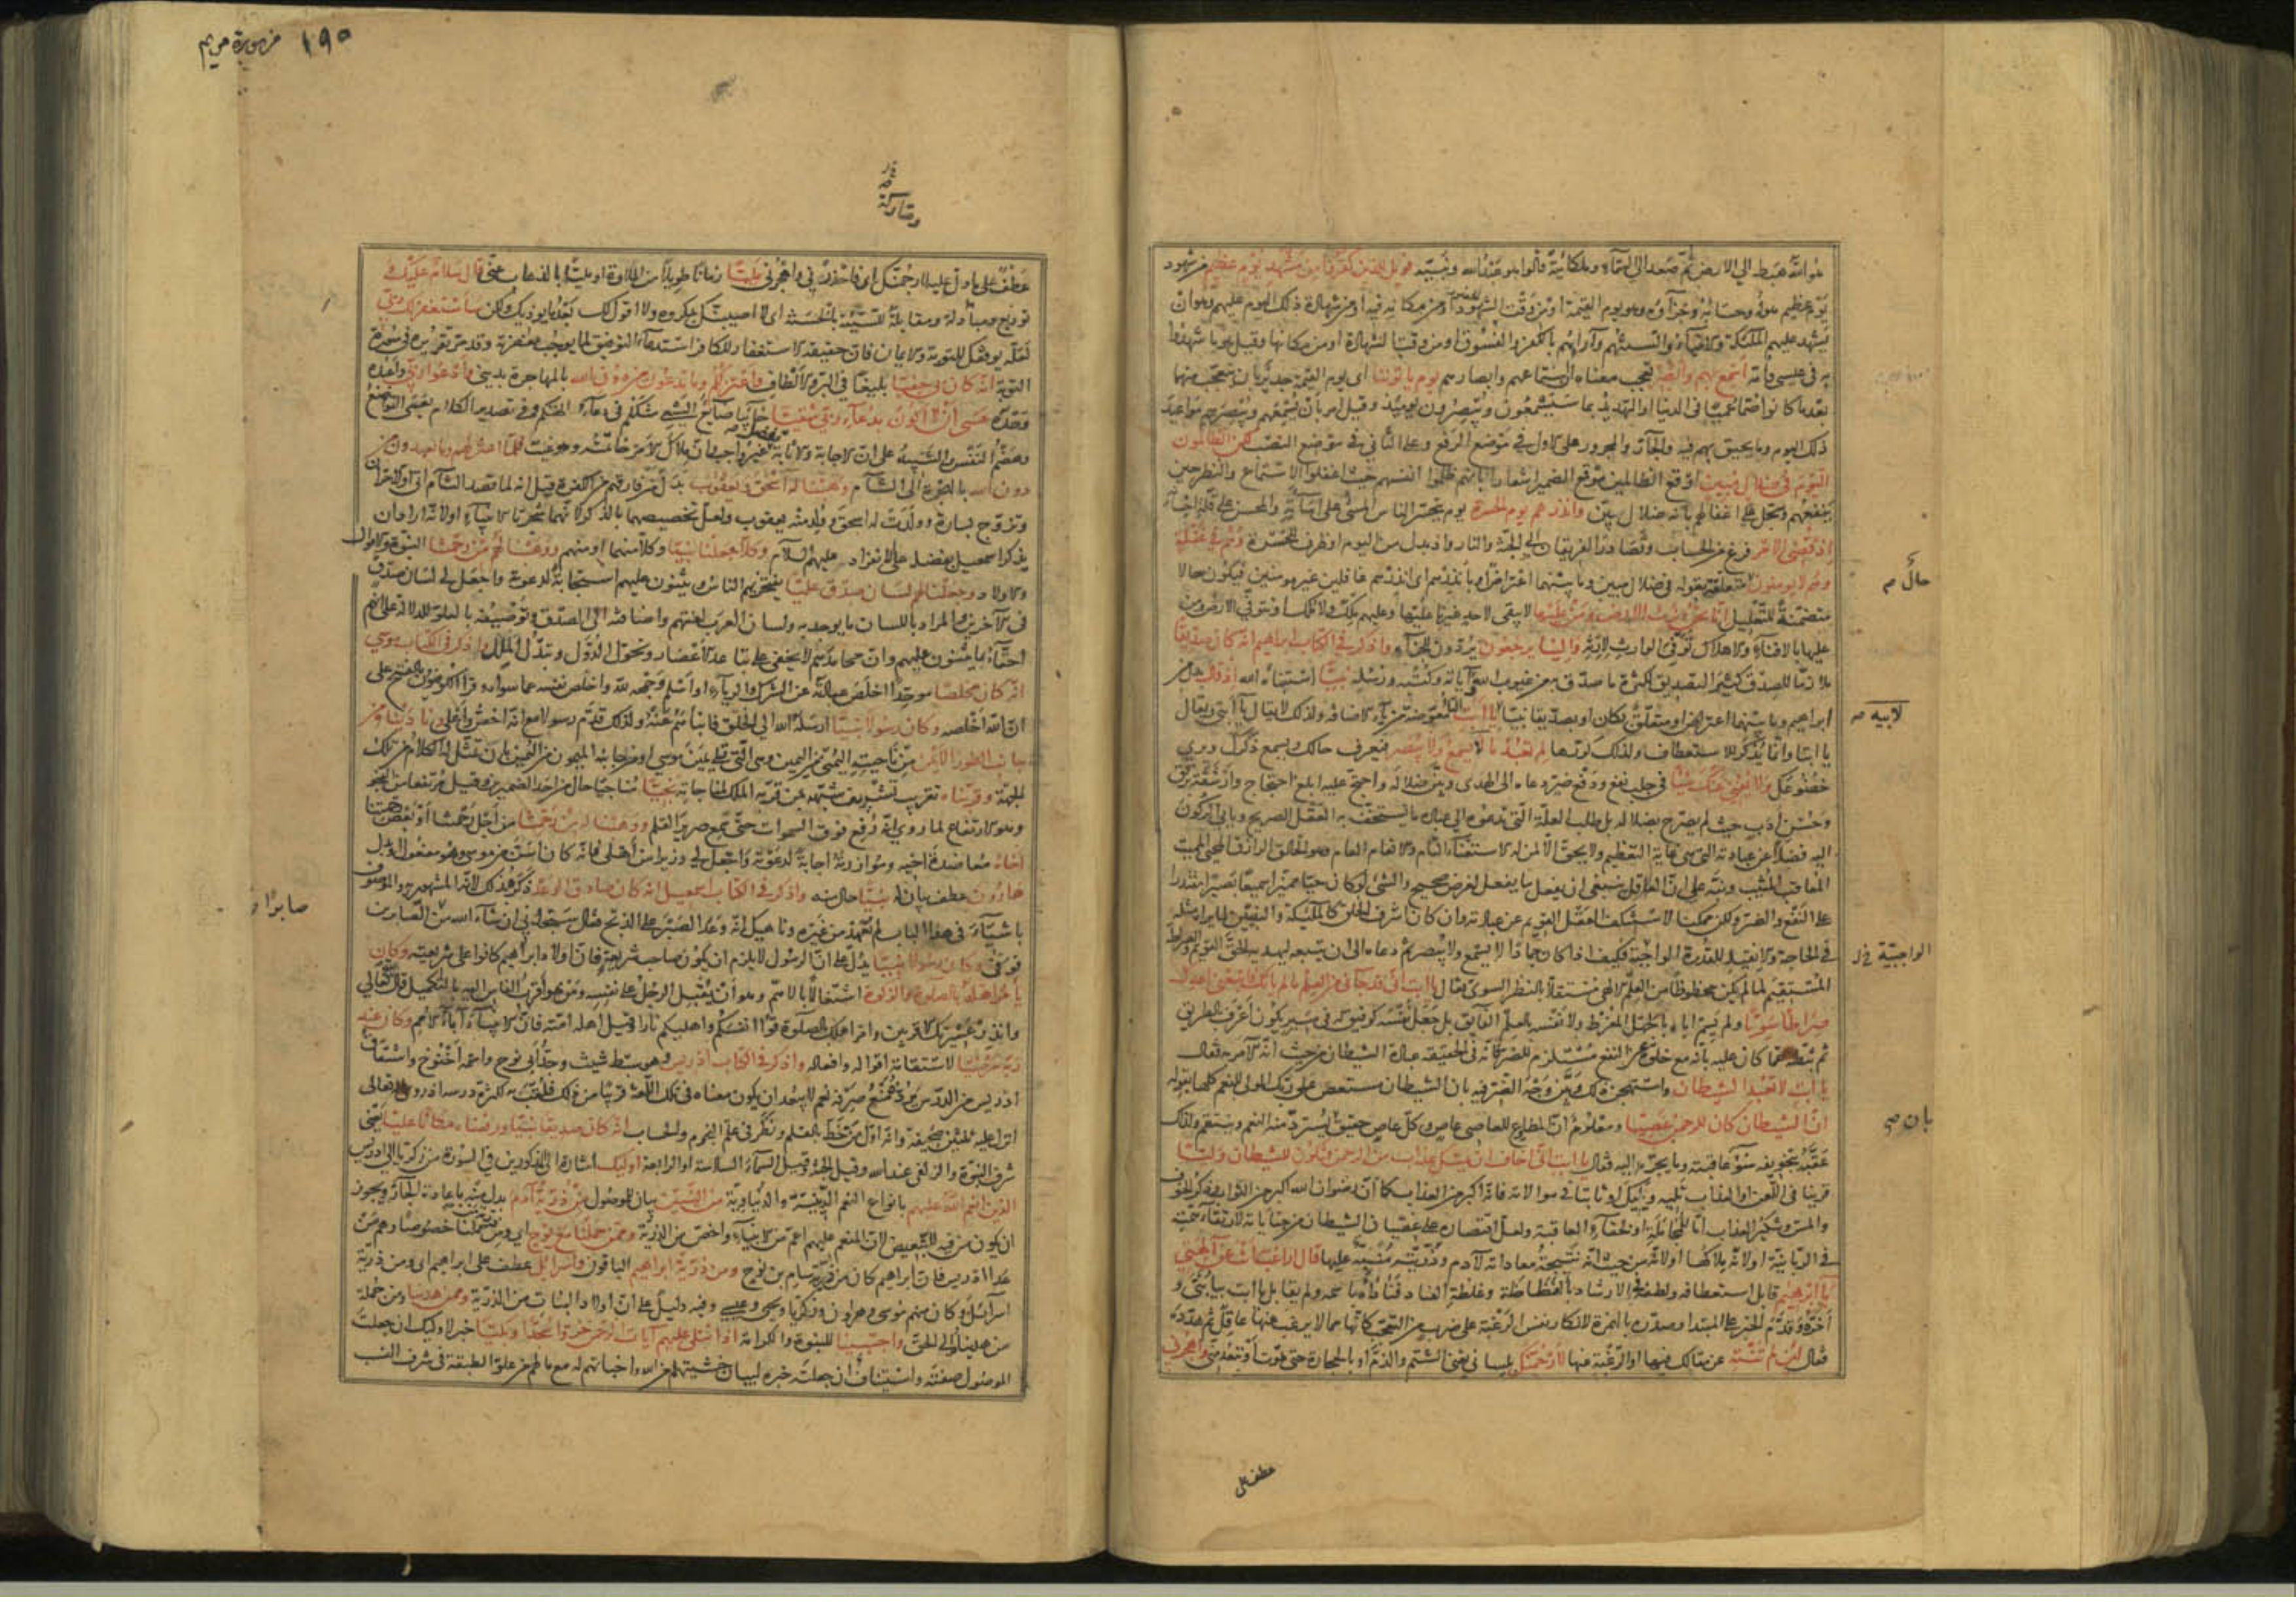 هو الله هبط الي الارض ثم صعد الي السماء وملكائية قالوا هو عبد الله ونبيه فويل للذين كفروا من مشهد يوم عظيم من شهود
يوم عظيم هوله وحسابه وجزاؤه وهو يوم القيمة او من وقت الشهود او من مكانه فيه او من شهادة ذلك اليوم عليهم وهو ان
يشهد عليهم الملئكة والانبياء والسنتهم وآرابهم بالكفر والفسوق او من وقت الشهادة او من مكانها وقيل هو ما شهدوا
به في عيسى وامه اسمع بهم وابصر تعجب معناه ان استماعهم وابصارهم يوم يأتوننا اى يوم القيمة جدير بان يتعجب منهما
بعد ما كانوا صما عميا في الدنيا او التهديد بما سيسمعون ويبصرون يومئذ وقيل امر بان يسمعهم ويبصرهم مواعيد
ذلك اليوم وما يحيق بهم فيه والجار والمجرور على الاول في موضع الرفع وعلى الثاني في موضع النصب لكن الظالمون
اليوم في ضلال مبين اوقع الظالمين موقع الضمير اشعارا بانهم ظلموا انفسهم حيث اغفلوا الاستماع والنظر حين
ينفعهم وسجل على اغفالهم بانه ضلال بين وانذرهم يوم الحسرة يوم يتحسر الناس المسئ على اساءته والمحسن على قلة احسانه
اذ قضى الامر فرغ من الحساب وتصادر الفريقان الى الجنة والنار واذ بدل من اليوم او ظرف للحسرة وهم في غفلة
وهم لا يؤمنون متعلقة بقوله في ضلال مبين وما بينهما اعتراض او بأنذرهم اى انذرهم غافلين غير مؤمنين فيكون حالا
متضمنة للتعليل انا نحن نرث الارض ومن عليها لا يبقى لاحد غيرنا عليها وعليهم ملك ولا ملك او نتوفى الارض ومن
عليها بالافناء والاهلاك توفي الوارث لارثه والينا يرجعون يردون للجزاء واذكر في الكتاب ابراهيم انه كان صديقا
ملازما للصدق كثير التصديق لكثرة ما صدق به من غيوب الله وآياته وكتبه ورسله نبيا استنبأه الله اذ قال بدل من
ابراهيم وما بينهما اعتراض او متعلق بكان او بصديقا نبيا يا ابت التاء معوضة من ياء الاضافة ولذلك لا يقال يا ابتي ويقال
يا ابتا وانما يذكر للاستعطاف ولذلك كررها لم تعبد ما لا يسمع ولا يبصر فيعرف حالك ويسمع ذكرك ويرى
خضوعك ولا يغني عنك شيئا في جلب نفع ودفع ضر دعاه الى الهدى وبين ضلاله واحتج عليه ابلغ احتجاج وارشقه برفق
وحسن ادب حيث لم يصرح بضلاله بل طلب العلة التي تدعوه الى عبادة ما يستخف به العقل الصريح ويابى الركون
اليه فضلا عن عبادته التي هي غاية التعظيم ولا يحق الا لمن له الاستغناء التام والانعام العام وهو الخالق الرازق المحيى المميت
المعاقب المثيب ونبه على ان العاقل ينبغى ان يفعل ما يفعل لغرض صحيح والشئ لو كان حيا مميزا سميعا بصيرا مقتدرا
على النفع والضر ولكن ممكنا لاستنكف العقل القويم عن عبادته وان كان اشرف الخلق كالملئكة والنبيين لما يراه مثله
في الحاجة والانقياد للقدرة الواجبة فكيف اذا كان جمادا لا يسمع ولا يبصر ثم دعاه الى ان يتبعه ليهديه الحق القويم والصراط
المستقيم لما لم يكن محظوظا من العلم الالهى مستقلا بالنظر السوى فقال يا ابت انى قد جاءنى من العلم ما لم يأتك فاتبعنى اهدك
صراطا سويا ولم يسم اباه بالجهل المفرط ولا نفسه بالعلم الفايق بل جعل نفسه كرفيق له في مسير يكون اعرف بالطريق
ثم ثبطه عما كان عليه بانه مع خلوه عن النفع مستلزم للضر فانه في الحقيقة عبادة الشيطان من حيث انه الآمر به فقال
يا ابت لا تعبد الشيطان واستهجن ذلك وبين وجه الضر فيه بان الشيطان مستعص على ربك المولى للنعم كلها بقوله
ان الشيطان كان للرحمن عصيا ومعلوم ان المطاوع للعاصى عاص وكل عاص حقيق بان يسترد منه النعم وينتقم ولذلك
عقبه بتخويفه سوء عاقبته وما يجره اليه فقال يا ابت انى اخاف ان يمسك عذاب من الرحمن فتكون للشيطان وليا
قرينا في اللعن او العذاب تليه ويليك او ثابتا في موالاته فانه اكبر من العذاب كما ان رضوان الله اكبر من الثواب وذكر الخوف
والمس وتنكير العذاب اما للمجاملة او لخفاء العاقبة ولعل اقتصاره على عصيان الشيطان من جناياته لارتقاء همته
في الربانية او لانه ملاكها او لانه من حيث انه نتيجة معاداته لآدم وذريته منبه عليها قال اراغب انت عن آلهتى
يا ابراهيم قابل استعطافه ولطفه في الارشاد بالفظاظة وغلظة العناد فناداه باسمه ولم يقابل يا ابت بيا بني و
اخره وقدم الخبر على المبتدا وصدره بالهمزة لانكار نفس الرغبة على ضرب من التعجب كانها مما لا يرغب عنها عاقل ثم هدده
فقال لئن لم تنته عن مقالك فيها او الرغبة عنها لارجمنك بلساني يعنى الشتم والذم او بالحجارة حتى تموت او تبعد مني واهجرني
حال صح
لابيه صح
الواجبية خ ل
بان صح
عطف على
١٩٥ من سورة مريم
ومتاركة
عطف على ما دل عليه لارجمنك اى فاحذرني واهجرني مليا زمانا طويلا من الملاوة او مليا بالذهاب عنى قال سلام عليك
توديع ومتاركة ومقابلة للسيئة بالحسنة اى لا اصيبك بمكروه ولا اقول لك بعد ما يؤذيك ولكن سأستغفر لك ربي
لعله يوفقك للتوبة والايمان فان حقيقة الاستغفار للكافر استدعاء التوفيق لما يوجب مغفرته وقد مر تقريره في سورة
التوبة انه كان بي حفيا بليغا في البر والالطاف واعتزلكم وما تدعون من دون الله بالمهاجرة بديني وادعو ربي واعبده
وحده عسى ان لا اكون بدعاء ربي شقيا خائبا ضايع السعى مثلكم في دعاء آلهتكم وفي تصدير الكلام بعسى التواضع
وهضم النفس والتنبيه على ان الاجابة والاثابة تفضل غير واجب وان ملاك الامر خاتمته وهو غيب فلما اعتزلهم وما يعبدون من
دون الله بالهجرة الى الشام وهبنا له اسحق ويعقوب بدل من فارقهم من الكفرة قيل انه لما قصد الشام اتى اولا حران
وتزوج بسارة وولدت له اسحق وولد منه يعقوب ولعل تخصيصهما بالذكر لانهما شجرتا الانبياء او لانه اراد ان
يذكر اسمعيل بفضله على الانفراد عليهم السلام وكلا جعلنا نبيا وكلا منهما او منهم ووهبنا لهم من رحمتنا النبوة والاموال
والاولاد وجعلنا لهم لسان صدق عليا يفتخر بهم الناس ويثنون عليهم استجابة لدعوته واجعل لي لسان صدق
في الآخرين والمراد باللسان ما يوجد به ولسان العرب لغتهم واضافته الى الصدق وتوصيفه بالعلو للدلالة على انهم
احقاء بما يثنون عليهم وان محامدهم لا تخفى على تباعد الاعصار وتحول الدول وتبدل الملل واذكر في الكتاب موسى
انه كان مخلصا موحدا اخلص عبادته عن الشرك والرياء او اسلم وجهه لله واخلص نفسه عما سواه وقرأ الكوفيون بالفتح على
ان الله اخلصه وكان رسولا نبيا ارسله الله الى الخلق فانبأهم عنه ولذلك قدم رسولا مع انه اخص واعلى وناديناه من
جانب الطور الايمن من ناحيته اليمنى من اليمين وهى التى تلى يمين موسى او من جانبه الميمون من اليمن بان تمثل له الكلام من تلك
الجهة وقربناه تقريب تشريف شبهه بمن قربه الملك لمناجاته نجيا مناجيا حال من احد الضميرين وقيل مرتفعا من النجو
وهو الارتفاع لما روى انه رفع فوق السموات حتى سمع صرير القلم ووهبنا له من رحمتنا من اجل رحمتنا او بعض رحمتنا
اخاه معاضدة اخيه وموازرته اجابة لدعوته واجعل لي وزيرا من اهلى فانه كان اسن من موسى وهو مفعول او بدل
هارون عطف بيان له نبيا حال منه واذكر في الكتاب اسمعيل انه كان صادق الوعد ذكره بذلك لانه المشهور به والموصوف
باشياء في هذا الباب لم تعهد من غيره وناهيك انه وعد الصبر على الذبح فقال ستجدني ان شاء الله من الصابرين
فوفى وكان رسولا نبيا يدل على ان الرسول لا يلزم ان يكون صاحب شريعة فان اولاد ابراهيم كانوا على شريعته وكان
يأمر اهله بالصلوة والزكوة اشتغالا بالاهم وهو ان يقبل الرجل على نفسه ومن هو اقرب الناس اليه بالتكميل قال تعالى
وانذر عشيرتك الاقربين وامر اهلك بالصلوة قوا انفسكم واهليكم نارا وقيل اهله امته فان الانبياء آباء الامم وكان عند
ربه مرضيا لاستقامة اقواله وافعاله واذكر في الكتاب ادريس وهو سبط شيث وجد ابي نوح واسمه اخنوخ واشتقاق
ادريس من الدرس يرده منع صرفه نعم لا يبعد ان يكون معناه في تلك اللغة قريبا من ذلك فلقب به لكثرة درسه اذ روى انه تعالى
انزل عليه ثلثين صحيفة وانه اول من خط بالقلم ونظر في علم النجوم والحساب انه كان صديقا نبيا ورفعناه مكانا عليا يعنى
شرف النبوة والزلفى عند الله وقيل الجنة وقيل السماء السادسة او الرابعة اولئك اشارة الى المذكورين في السورة من زكريا الى ادريس
الذين انعم الله عليهم بانواع النعم الدينية والدنياوية من النبيين بيان للموصول من ذرية آدم بدل منه باعادة الجار ويجوز
ان يكون من فيه للتبعيض لان المنعم عليهم اعم من الانبياء واخص من الذرية وممن حملنا مع نوح اى ومن ذرية من حملنا خصوصا وهم من
عدا ادريس فان ابراهيم كان من ذرية سام بن نوح ومن ذرية ابراهيم الباقون واسرائيل عطف على ابراهيم اى ومن ذرية
اسرائيل وكان منهم موسى وهرون وزكريا ويحيى وعيسى وفيه دليل على ان اولاد البنات من الذرية وممن هدينا ومن جملة
من هديناه الى الحق واجتبينا للنبوة والكرامة اذا تتلى عليهم آيات الرحمن خروا سجدا وبكيا خبر لاولئك ان جعلت
الموصول صفته واستيناف ان جعلته خبره لبيان خشيتهم من الله واخباتهم له مع ما لهم من علو الطبقة في شرف النسب
صابرا